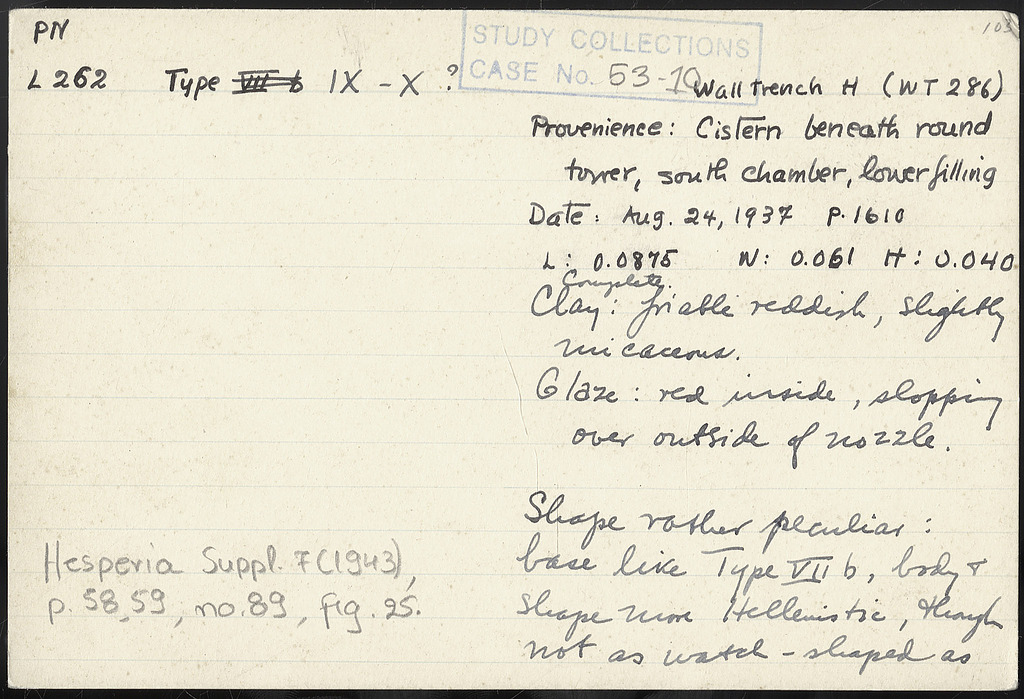 PN
103
STUDY COLLECTIONS
CASE No. 53-10
L 262 Type VII b IX - X ? Wall Trench H (WT 286)
Provenience: Cistern beneath round
tower, south chamber, lower filling
Date: Aug. 24, 1937 P. 1610
L: 0.0875 W: 0.061 H: 0.040
Complete.
Clay: friable reddish, slightly
micaceous.
Glaze: red inside, slopping
over outside of nozzle.
Shape rather peculiar:
base like Type VII b, body +
shape more Hellenistic, though
not as watch-shaped as
Hesperia Suppl. 7 (1943),
p. 58, 59, no. 89, fig. 25.